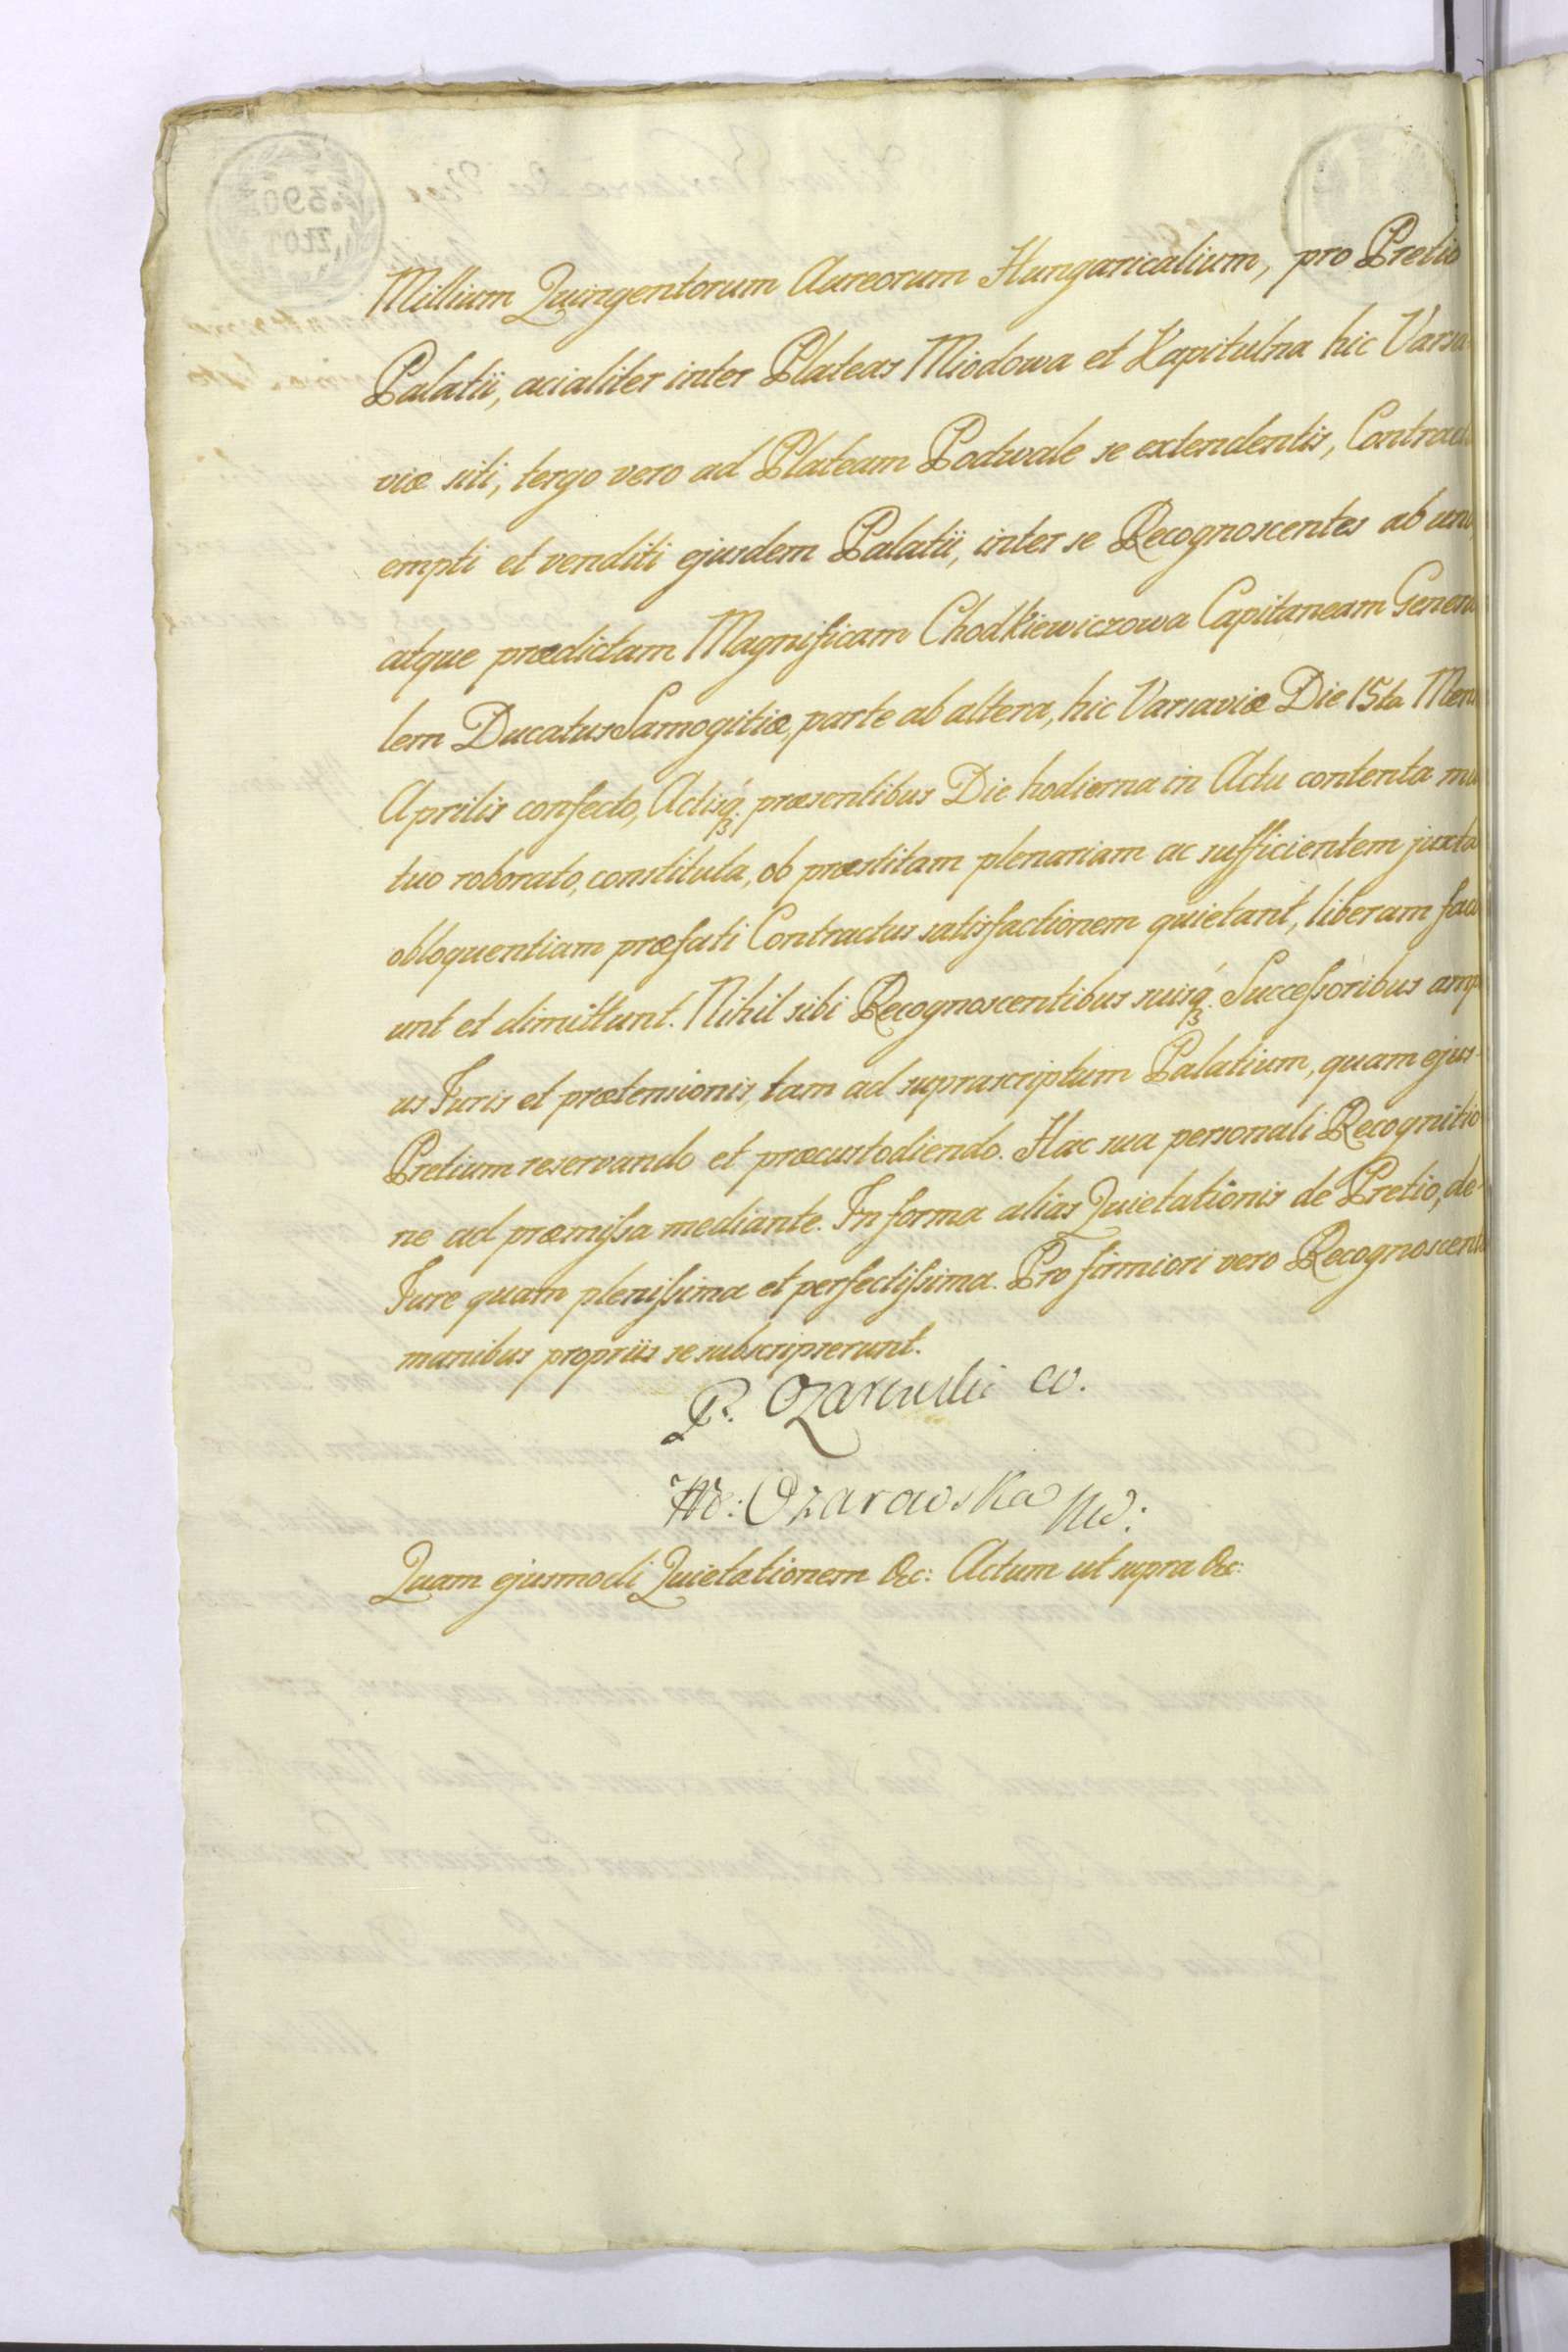 Millium Quingentorum Aureorum Hungaricalium, pro Pretio
Palatii, acialiter inter Plateas Miodowa et Kapitulna hic Varsa
viæ siti, tergo vero ad Plateam Podwale se extendentis, Contractu
empti et venditi ejusdem Palatii, inter se Recognoscentes ab una,
atque prædictam Magnificam Chodkiewiczowa Capitaneam Genera
lem Ducatus Samogitiæ, parte ab altera, hic Varsaviæ Die 15ta Mens
Aprilis confecto, Actisq; præsentibus Die hodierna in Actu contenta mu
tuo roborato, constituta, ob præstitam plenariam ac sufficientem juxta
obloquentiam præfati Contractus satisfactionem quietant, liberam faci
unt et dimittunt. Nihil sibi Recognoscentibus suisq; Successoribus ampl
us Juris et prætensionis, tam ad suprascriptum Palatium, quam ejus
Pretium reservando et præcustodiendo. Hac sua personali Recognitio
ne ad præmissa mediante. In forma alias Quietationis de Pretio, de
Jure quam plenissima et perfectissima. Pro firmiori vero Recognoscent
manibus propriis se subscripserunt.
P. Ozarowski
Ozarowska
Quam ejusmodi Quietationem &c: Actum ut supra &c: